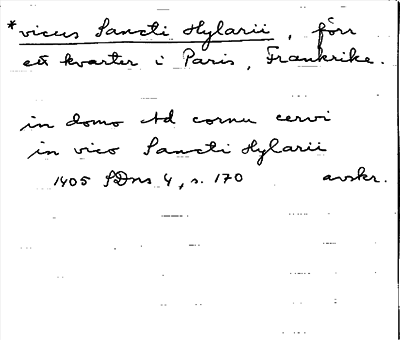 *vicus Sancti Hylarii, förr
ett kvarter i Paris, Frankrike.
in domo Ad cornu cervi
in vico Sancti Hylarii
1405 SDns 4, s. 170 avskr.